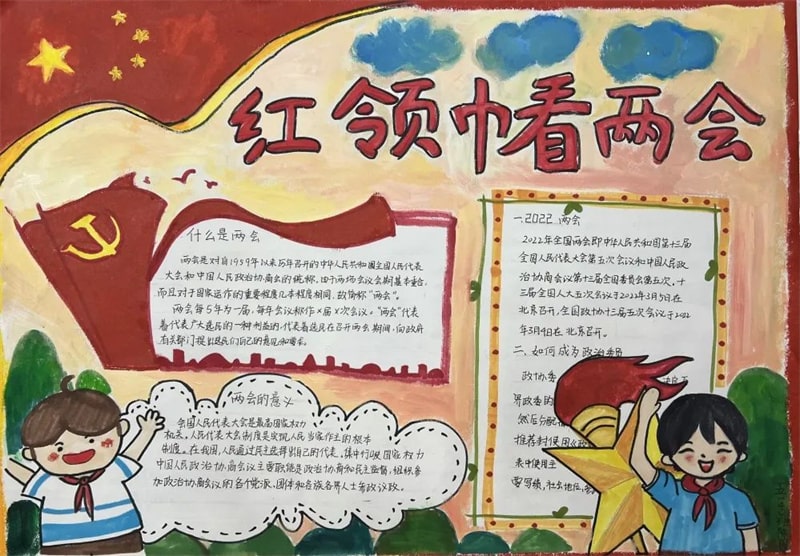 红领巾看两会
什么是两会
两会是对自1959年以来历年召开的中华人民共和国全国人民代表
大会和中国人民政治协商会的统称,由于两场会议会期基本重合,
而且对于国家运作的重要程度几本程度相同,故简称"两会"。
两会每5年为一届,每年会议称作×届×次会议。"两会"代表
着代表广大选民的一种利益的,代表着选民在召开两会期间,向政府
有关部门提出选民们自己的意见和要求。
两会的意义
全国人民代表大会是最高国家权力
机关。人民代表大会制度是实现人民当家作主的根本
制度。在我国,人民通过民主选择出自己的代表,集中行使国家权力
中国人民政治协商会议主要职能是政治协商和民主监督,组织参
加政治协商会议的各个党派、团体和各族各界人士参政议政。
一.2022 两会
2022年全国两会即中华人民共和国第十三届
全国人民代表大会第五次会议和中国人民政
治协商会议第十三届全国委员会第五次,十
三届全国人大五次会议于2022年3月5日在
北京召开,全国政协十三届五次会议于2022
年3月4日在北京召开。
二、如何成为政治委员
政协委
界政委的
然后分配
推荐时使用《政
表中使用
要写绩,社会地位,